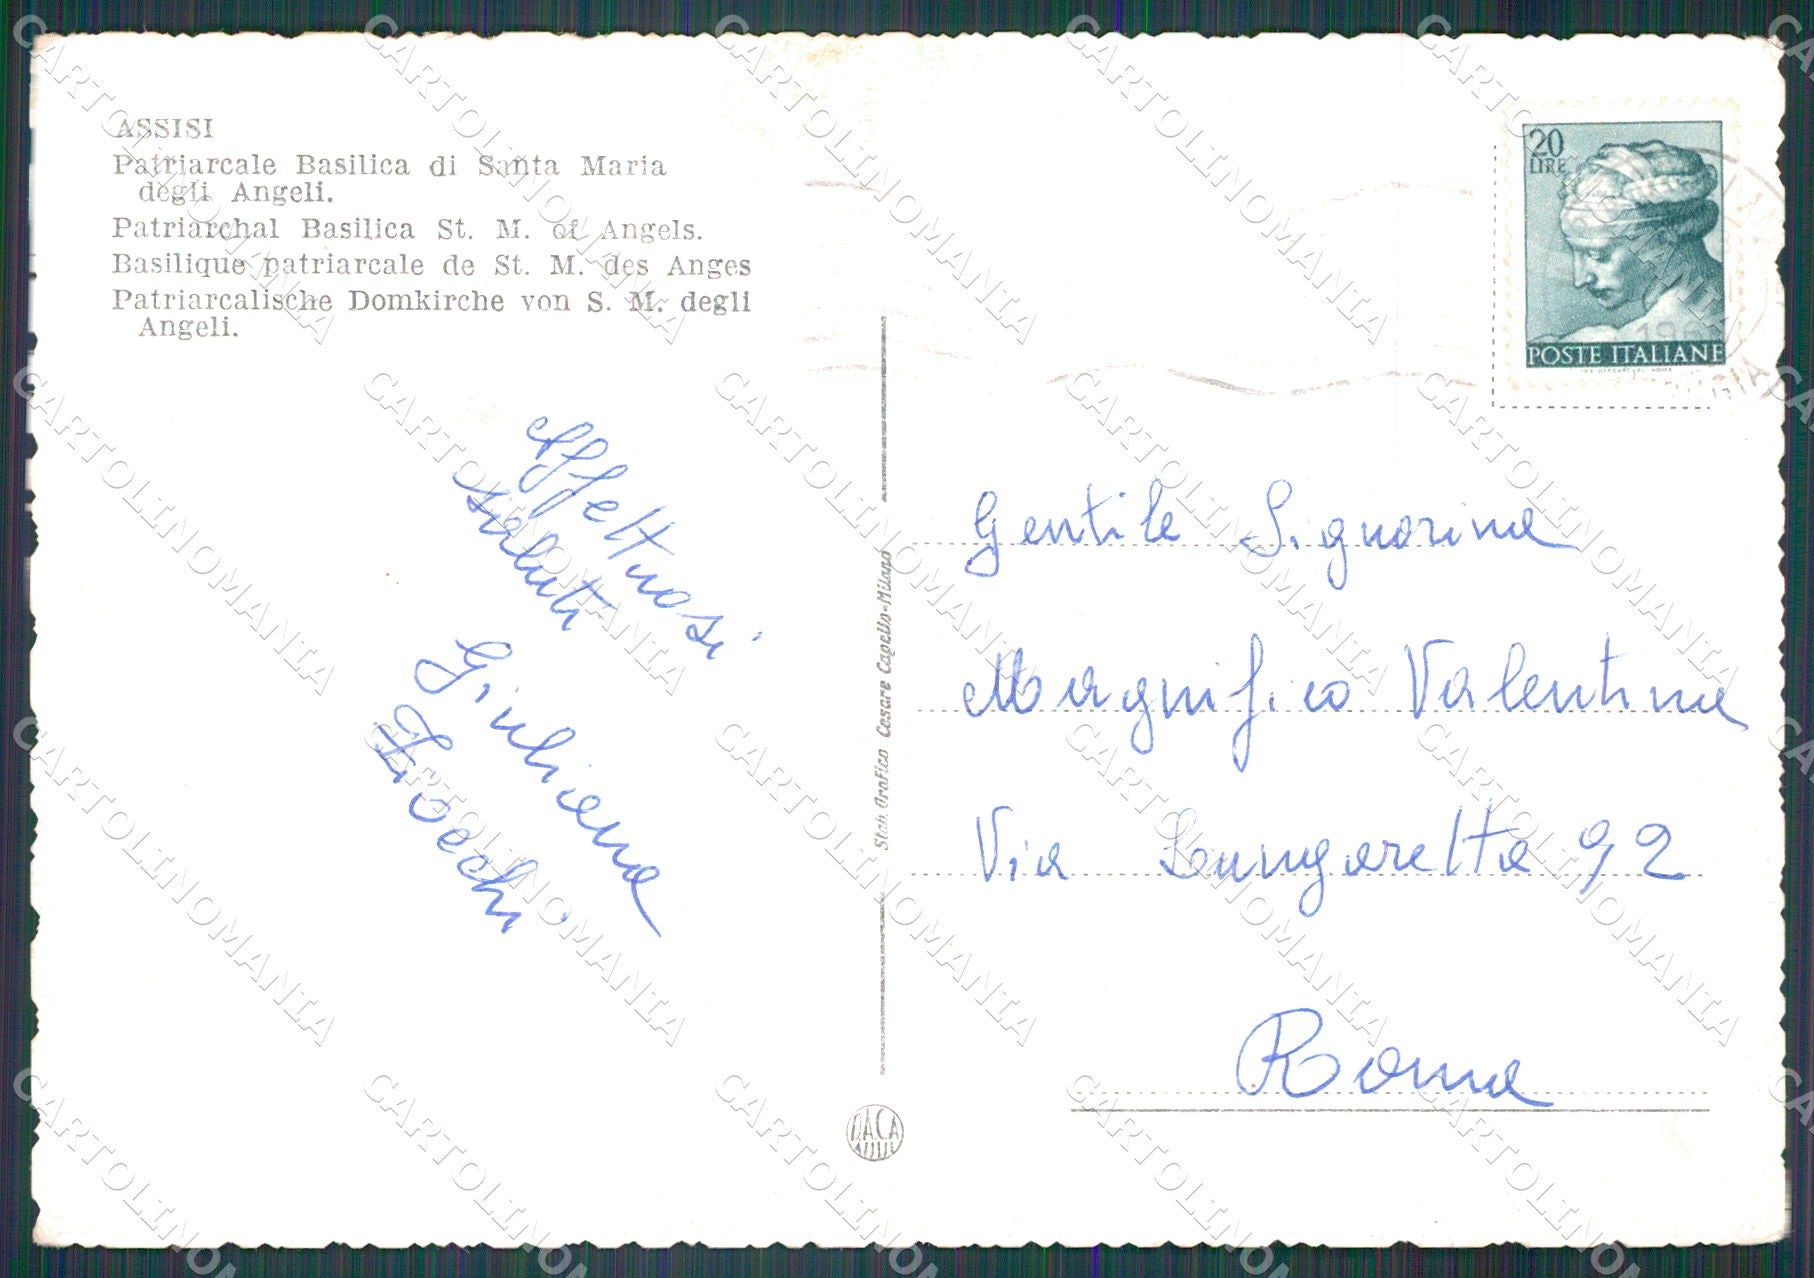 ASSISI
Patriarcale Basilica di Santa Maria
degli Angeli.
Patriarchal Basilica St. M. of Angels.
Basilique patriarcale de St. M. des Anges
Patriarcalische Domkirche von S. M. degli
Angeli.
20
LIRE
POSTE ITALIANE
affettuosi
saluti
Giuliana
Fiocchi
Stab. Grafico Cesare Capello-Milano
Gentile Signorina
Magnifico Valentina
Via Lungaretta 92
Roma
D.A.C.A
ASSISI
CARTOLINOMANIA